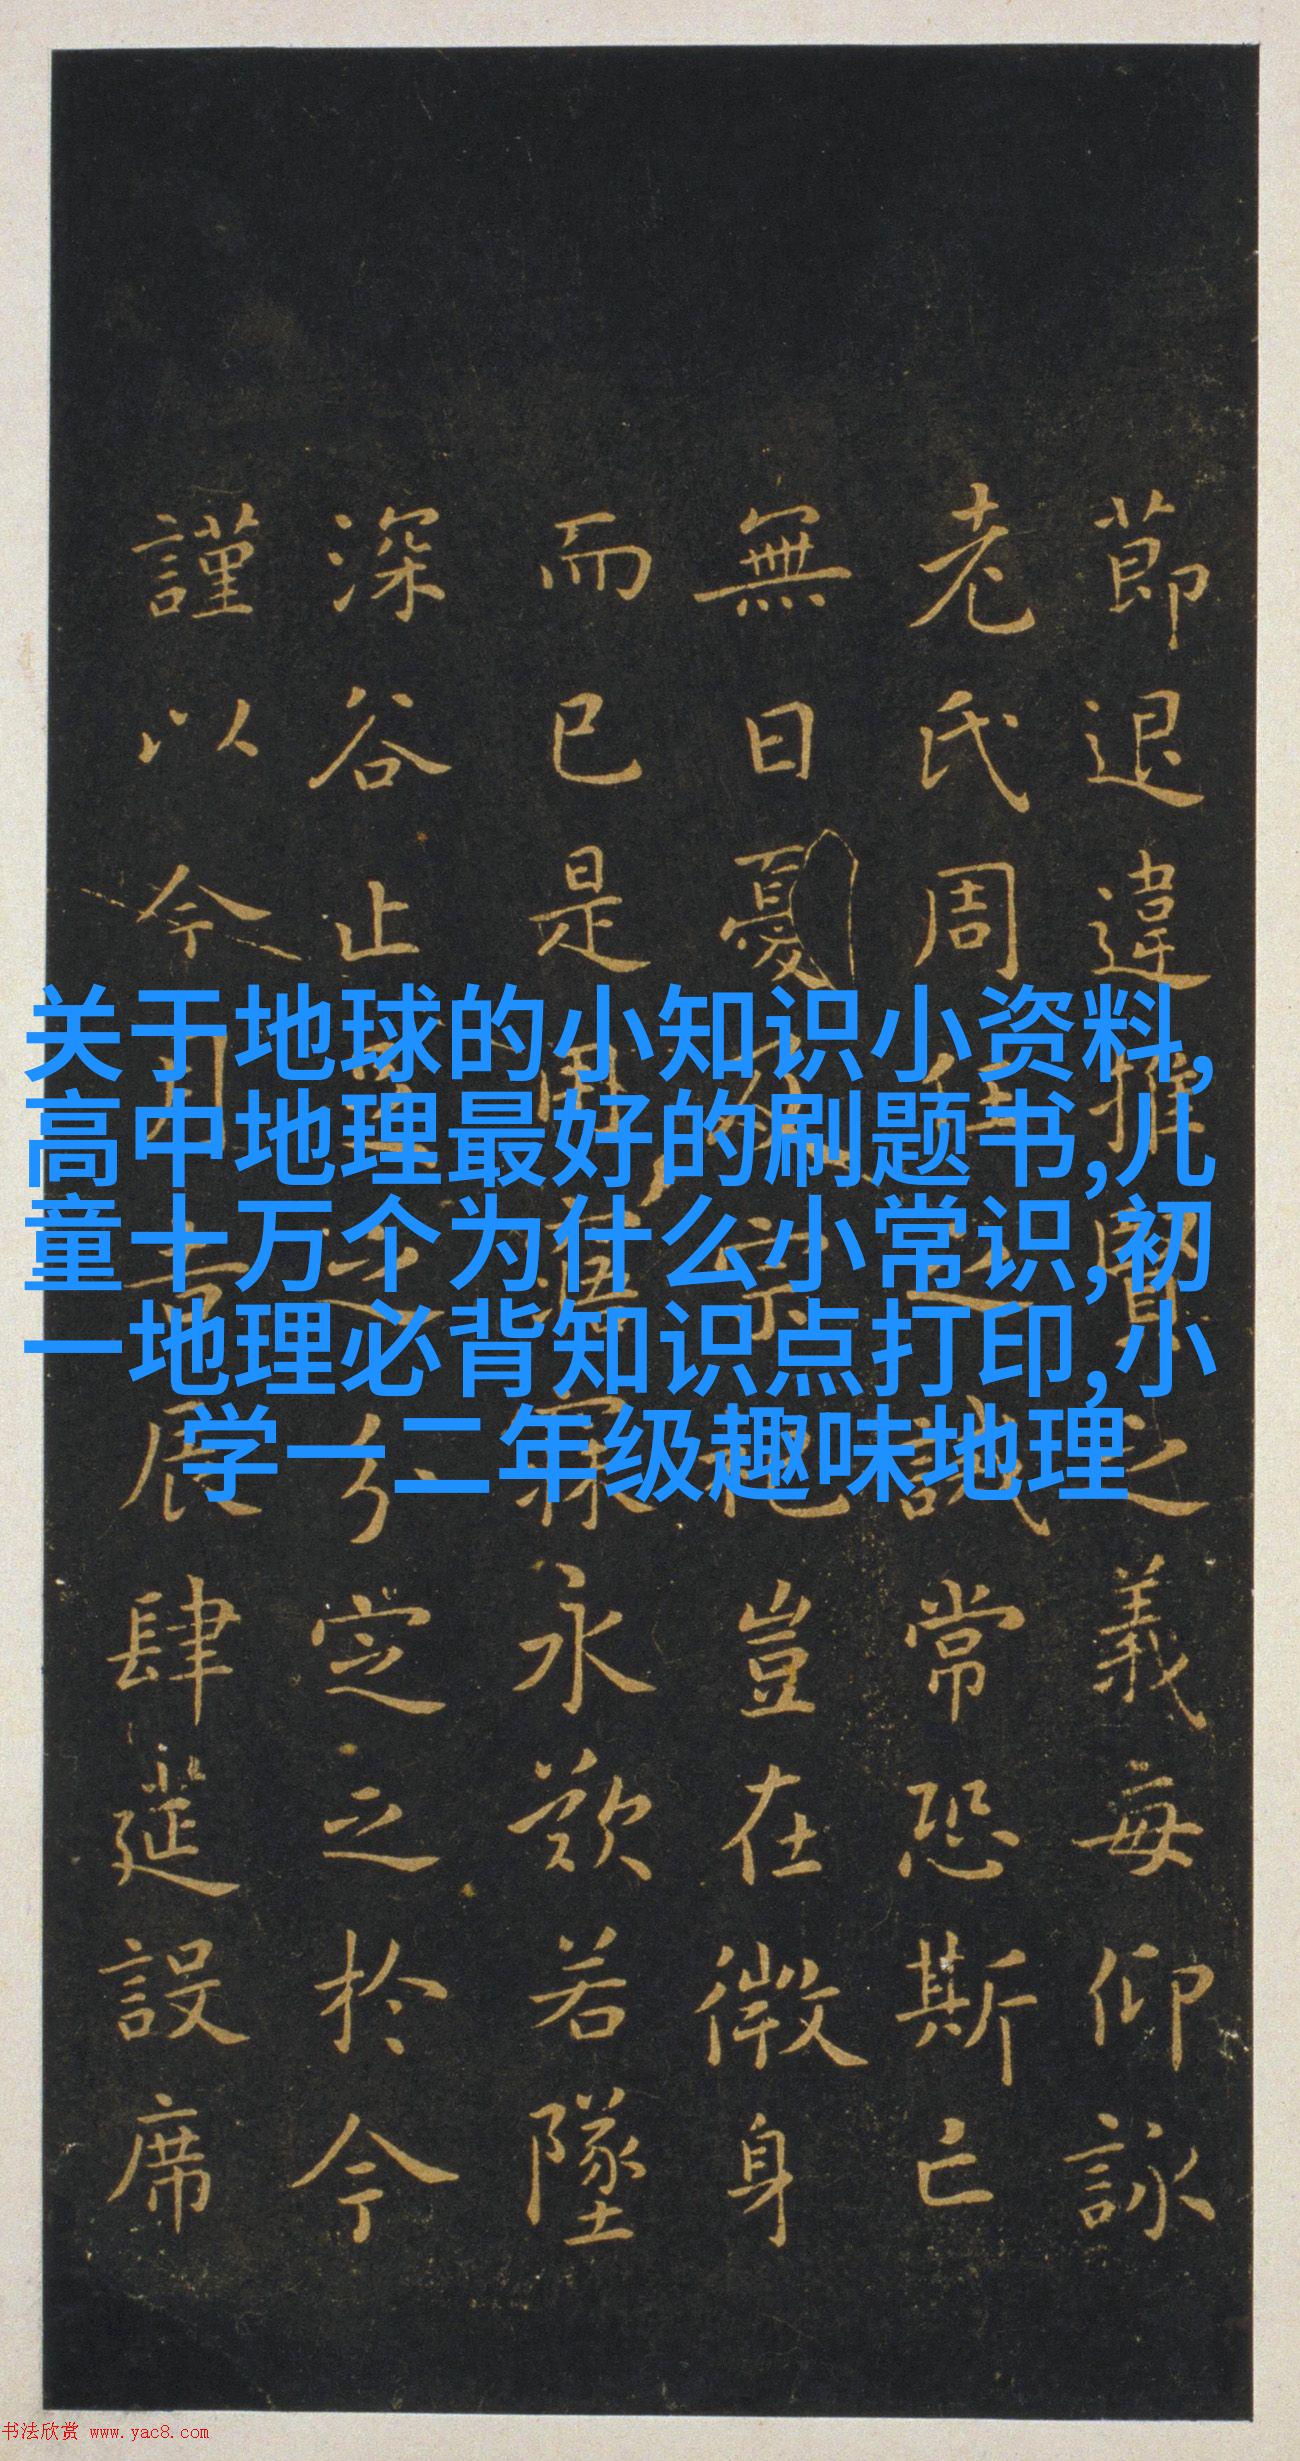 節退違推賢之義每仰詠
老氏周任之誡常恐斯亡
無日憂及宗祀豈在微身
而已是用寤寐永歎若墜
深谷止足之分定之於今
謹以今月吉辰肆筵設席
关于地球的小知识小资料,
高中地理最好的刷题书,儿
童十万个为什么小常识,初
一地理必背知识点打印,小
学一二年级趣味地理
书法欣赏 www.yac8.com